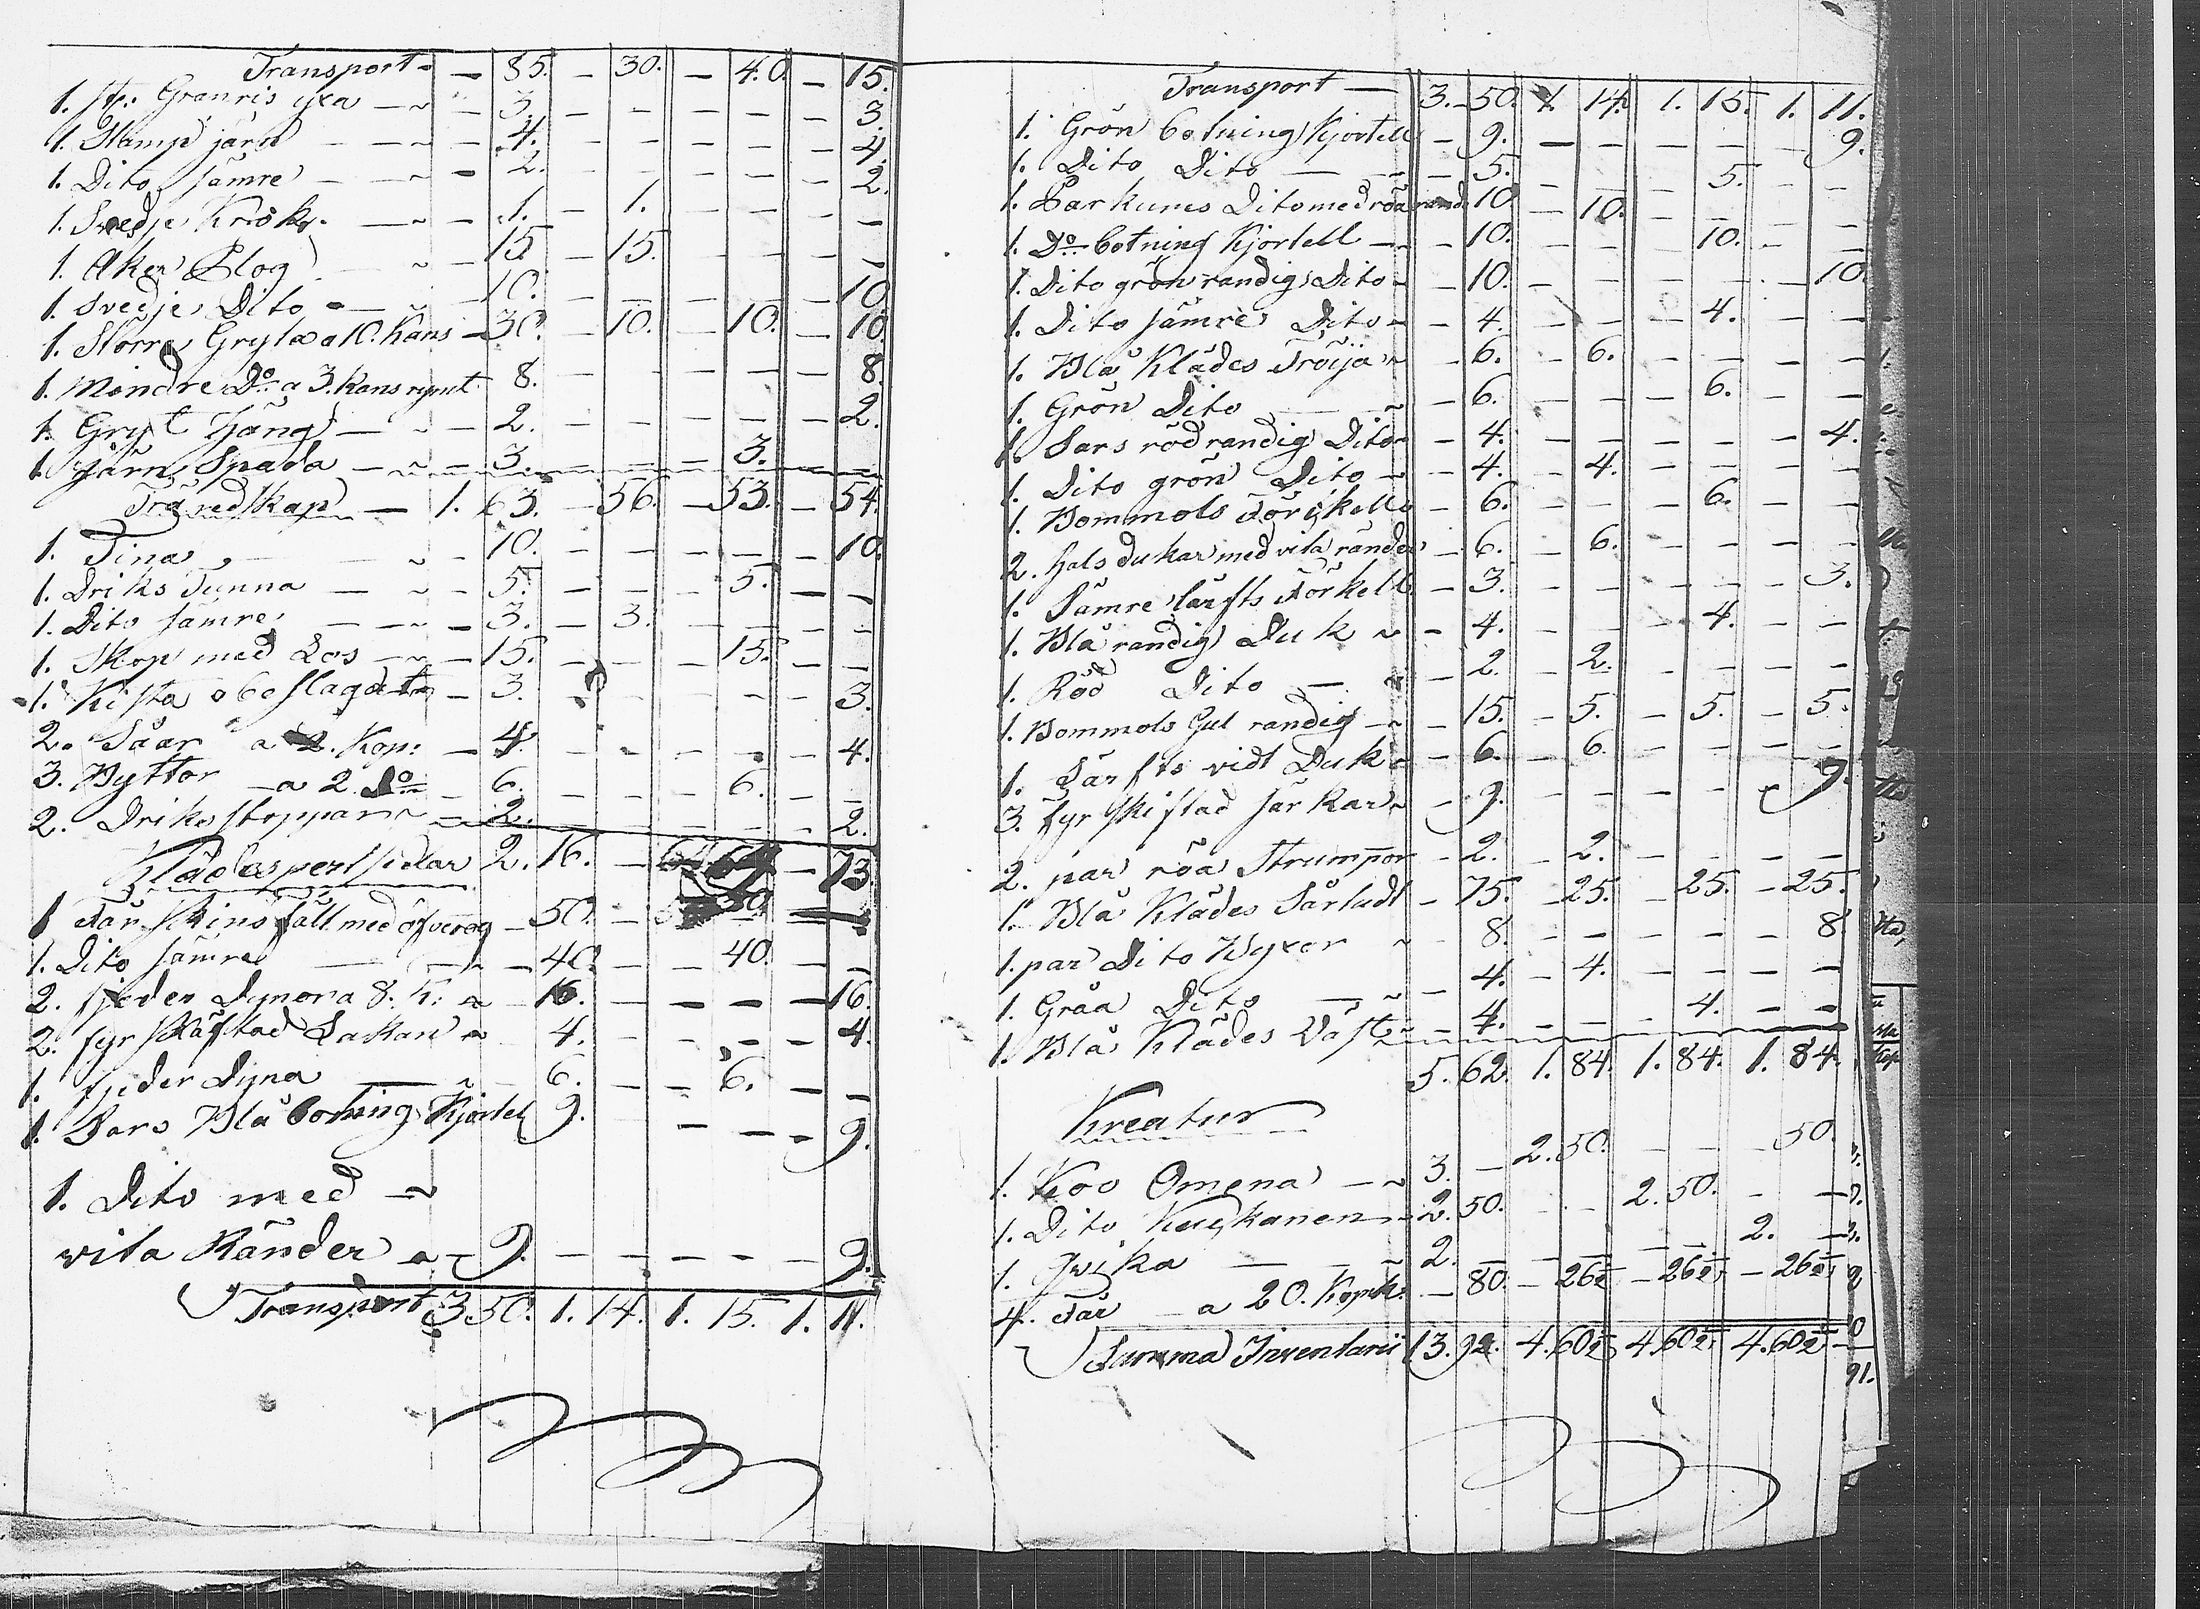 Transport — 85. — 30. — 40. — 15.
1. st. Granris yxa — 3. — — — 3.
1. Stamp järn — 4. — — — 4.
1. Dito sämre — 2. — — — 2.
1. Svedje Krok — 1. — 1. — — —
1. Åker Plog — 15. — 15. — — —
1. Svedje Dito — 10. — — — 10.
1. Större Gryta a 10. Kans — 30. — 10. — 10. — 10.
1. Mindre Do a 3. Kans rymt 8. — — — 8.
1. Gryt häng — 2. — — — 2.
1. järn Spada — 3. — — 3. —
Träredskap — 1. 63. — 56. — 53. — 54.
1. Tina — 10. — — — 10.
1. Driks Tunna — 5. — — 5. —
1. Dito sämre — 3. — 3. — — —
1. Skop med Los — 15. — — 15. —
1. Kista obeslagen — 3. — — — 3.
2. Såar a 2. Kop: — 4. — — — 4.
3. Byttor — a 2. Do — 6. — — 6. —
2. Driks stoppar — 2. — — — 2.
Klädespersedlar 2. 16. — 64. — 73.
1 Får skins fäll med öfverog — 50. —
1. Dito sämre — 40. — — 40. —
2. fjeder Dynora 8. K: a — 16. — — — 16.
2. fyr skäftad Lakan a — 4. — — — 4.
1. fjeder Dyna — 6. — — 6. —
1. Sars Blå botning Kjortel 9. — — — 9.
1. Dito med
vita Ränder a — 9. — — — 9.
Transport 3 50. 1. 14. 1. 15. 1. 11.
Transport — 3. 50. 1. 14. 1. 15. 1. 11.
1. Grön botning Kjortell — 9. — — — 9.
1. Dito Dito — 5. — — 5. —
1. Parkums Dito med röa rand. 10. — 10. — — —
1. Do botning Kjortell — 10. — — 10. —
1. Dito grön randig Dito — 10. — — — 10.
1. Dito sämre Dito — 4. — — 4. —
1. Blå Klädes Tröija — 6. — 6. — — —
1. Grön Dito — 6. — — 6. —
1. Sars röd randig Dito — 4. — — — 4.
1. Dito grön Dito — 4. — 4. — — —
1. Bommols Förkell — 6. — — 6. —
2. hals dukar med vita ränder — 6. — 6. — — —
1. Sämre lärfts Förkell — 3. — — — 3.
1. Blå randig Duk — 4. — — 4. —
1. Röd Dito — 2. — 2. — — —
1. Bommols Gul randig — 15. — 5. — 5. — 5.
1. Lärfts vidt Duk — 6. — 6. — — —
3. fyr skiftad Särkar — 9. — — — 9.
2. par röa Strumpor — 2. — 2. — — —
1. Blå Klädes Sårtudt — 75. — 25. — 25. — 25.
1. par Dito Byxor — 8. — — — 8
1. Gråa Dito — 4. — 4. — — —
1. Blå Klädes Väst — 4. — — 4. —
5. 62. 1. 84. 1. 84. 1. 84.
Kreatur
1. Koo Omena — 3. — 2. 50. — — 50.
1. Dito — 2. 50. — — 2. 50. —
1. Qviga — 2. — — — 2. —
4. Får — a 20. Kopek: — 80. — 26 2/3 — 26 2/3 — 26 2/3
Summa Inventarii 13. 92. 4. 60 2/3 4. 60 2/3 4. 60 2/3
91.